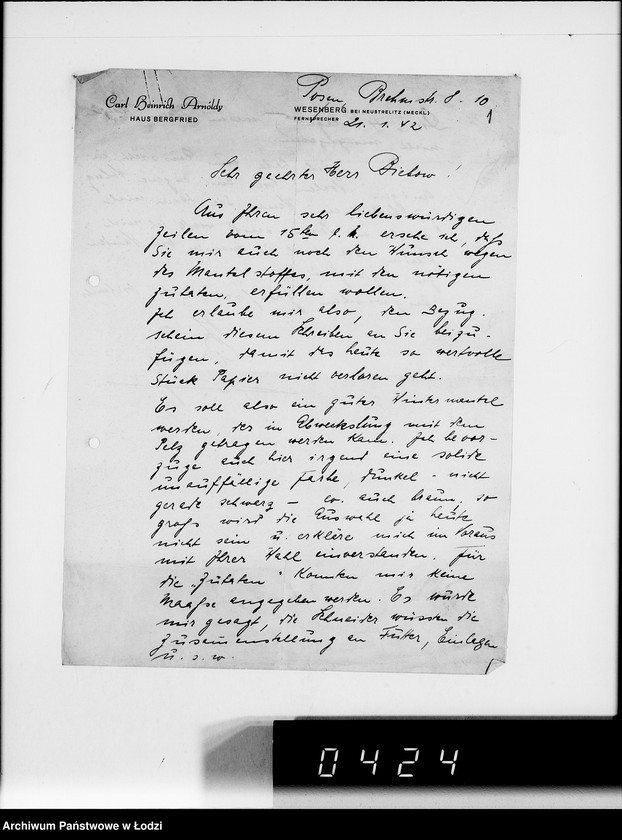 Carl Heinrich Arnoldy
HAUS BERGFRIED
Posen, Brehmstr. 8-10
WESENBERG BEI NEUSTRELITZ (MECKL.)
FERNSPRECHER
21.1.42
1
Sehr geehrter Herr Biebow!
Aus Ihren sehr liebenswürdigen
Zeilen vom 15ten l. M. ersehe ich, daß
Sie mir auch noch den Wunsch wegen
des Mantelstoffes, mit den nötigen
Zutaten, erfüllen wollen.
Ich erlaube mir also, den Bezug-
schein diesem Schreiben an Sie beizu-
fügen, damit das heute so wertvolle
Stück Papier nicht verloren geht.
Es soll also ein guter Wintermantel
werden, der in Abwechslung mit dem
Pelz getragen werden kann. Ich bevor-
zuge auch hier irgend eine solide
unauffällige Farbe, dunkel - nicht
gerade schwarz - ev. auch braun, so
groß wird die Auswahl ja heute
nicht sein u. erkläre mich im Voraus
mit Ihrer Wahl einverstanden. Für
die "Zutaten" konnten mir keine
Maaße angegeben werden. Es wurde
mir gesagt, die Schneider wüssten die
Zusammenstellung an Futter, Einlagen
u. s. w.
0424
Archiwum Państwowe w Łodzi